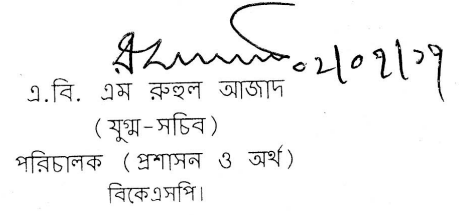 ০২/০৭/১৭
এ.বি. এম রুহুল আজাদ
(যুগ্ম-সচিব)
পরিচালক (প্রশাসন ও অর্থ)
বিকেএসপি।